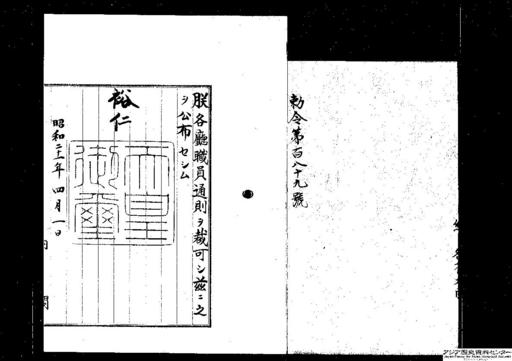 勅令第百八十九號
朕各廳職員通則ヲ裁可シ茲ニ之
ヲ公布セシム
裕仁
天皇御璽
昭和二十一年四月一日
アジア歴史資料センター